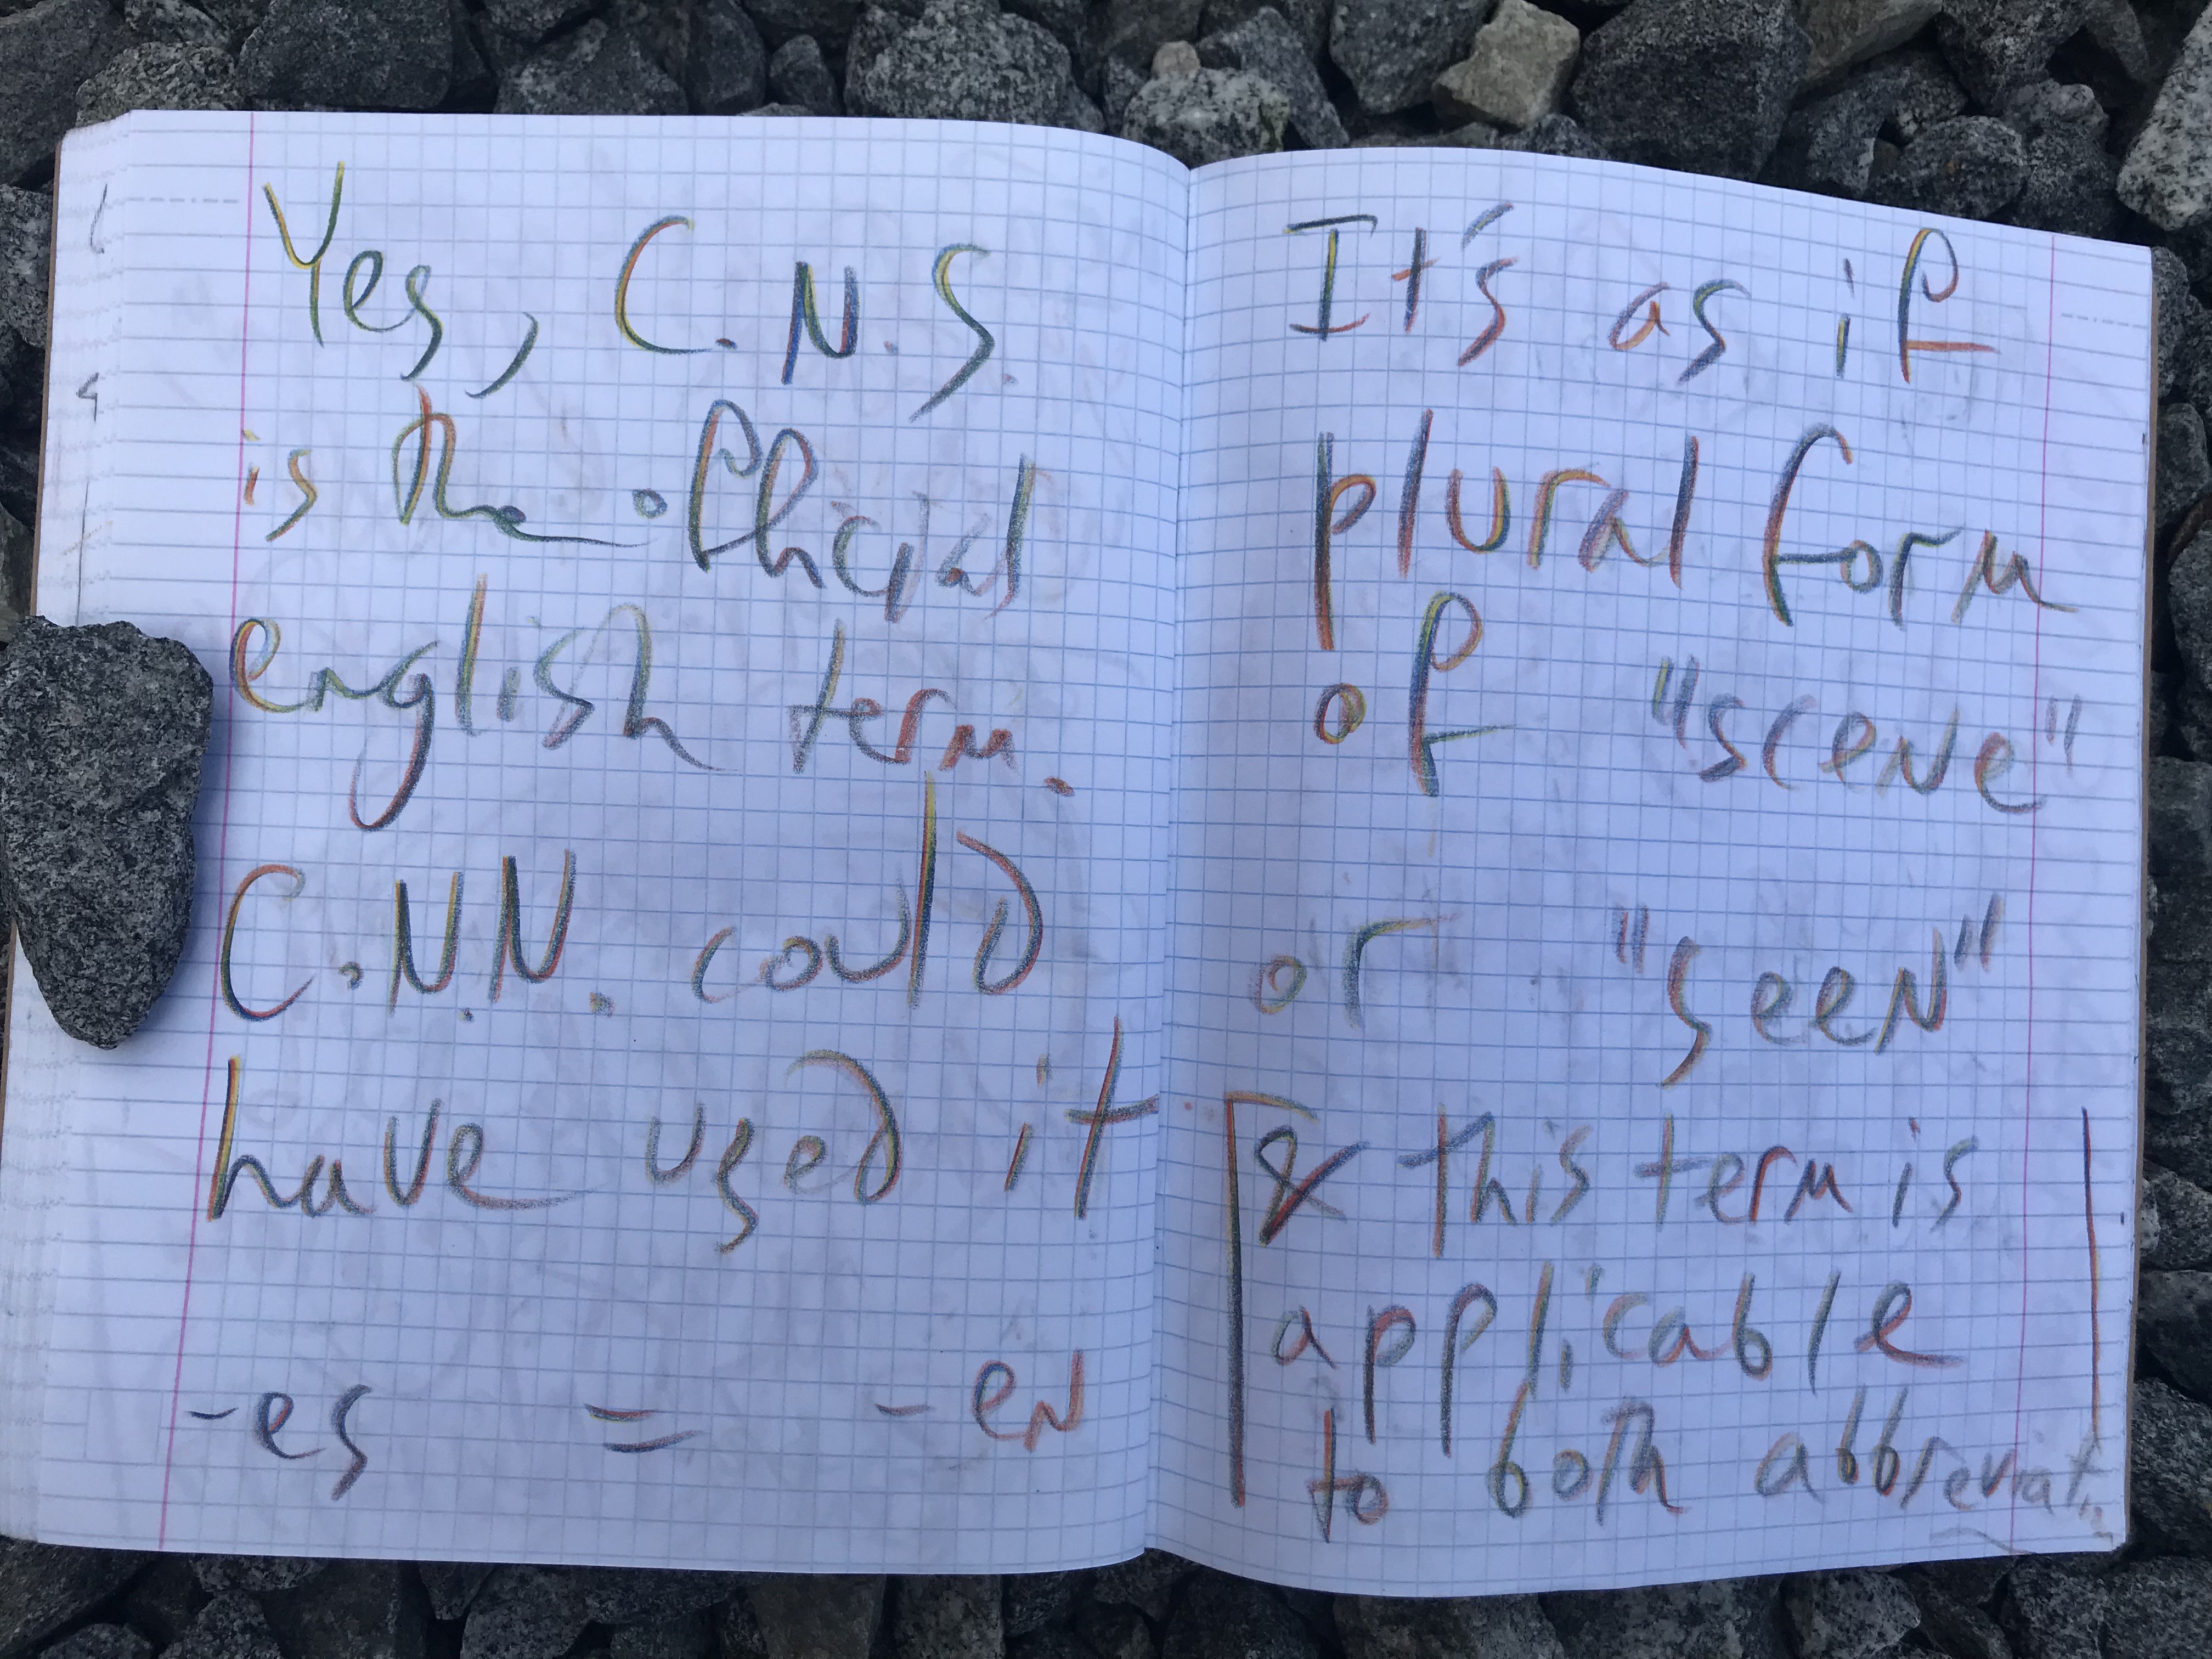 Yes, C.N.S.
is the official
english term.
C.N.N. could
have used it
-es = -en
It's as if
plural form
of "scene"
or "seen"
& this term is
applicable
to both abbreviat